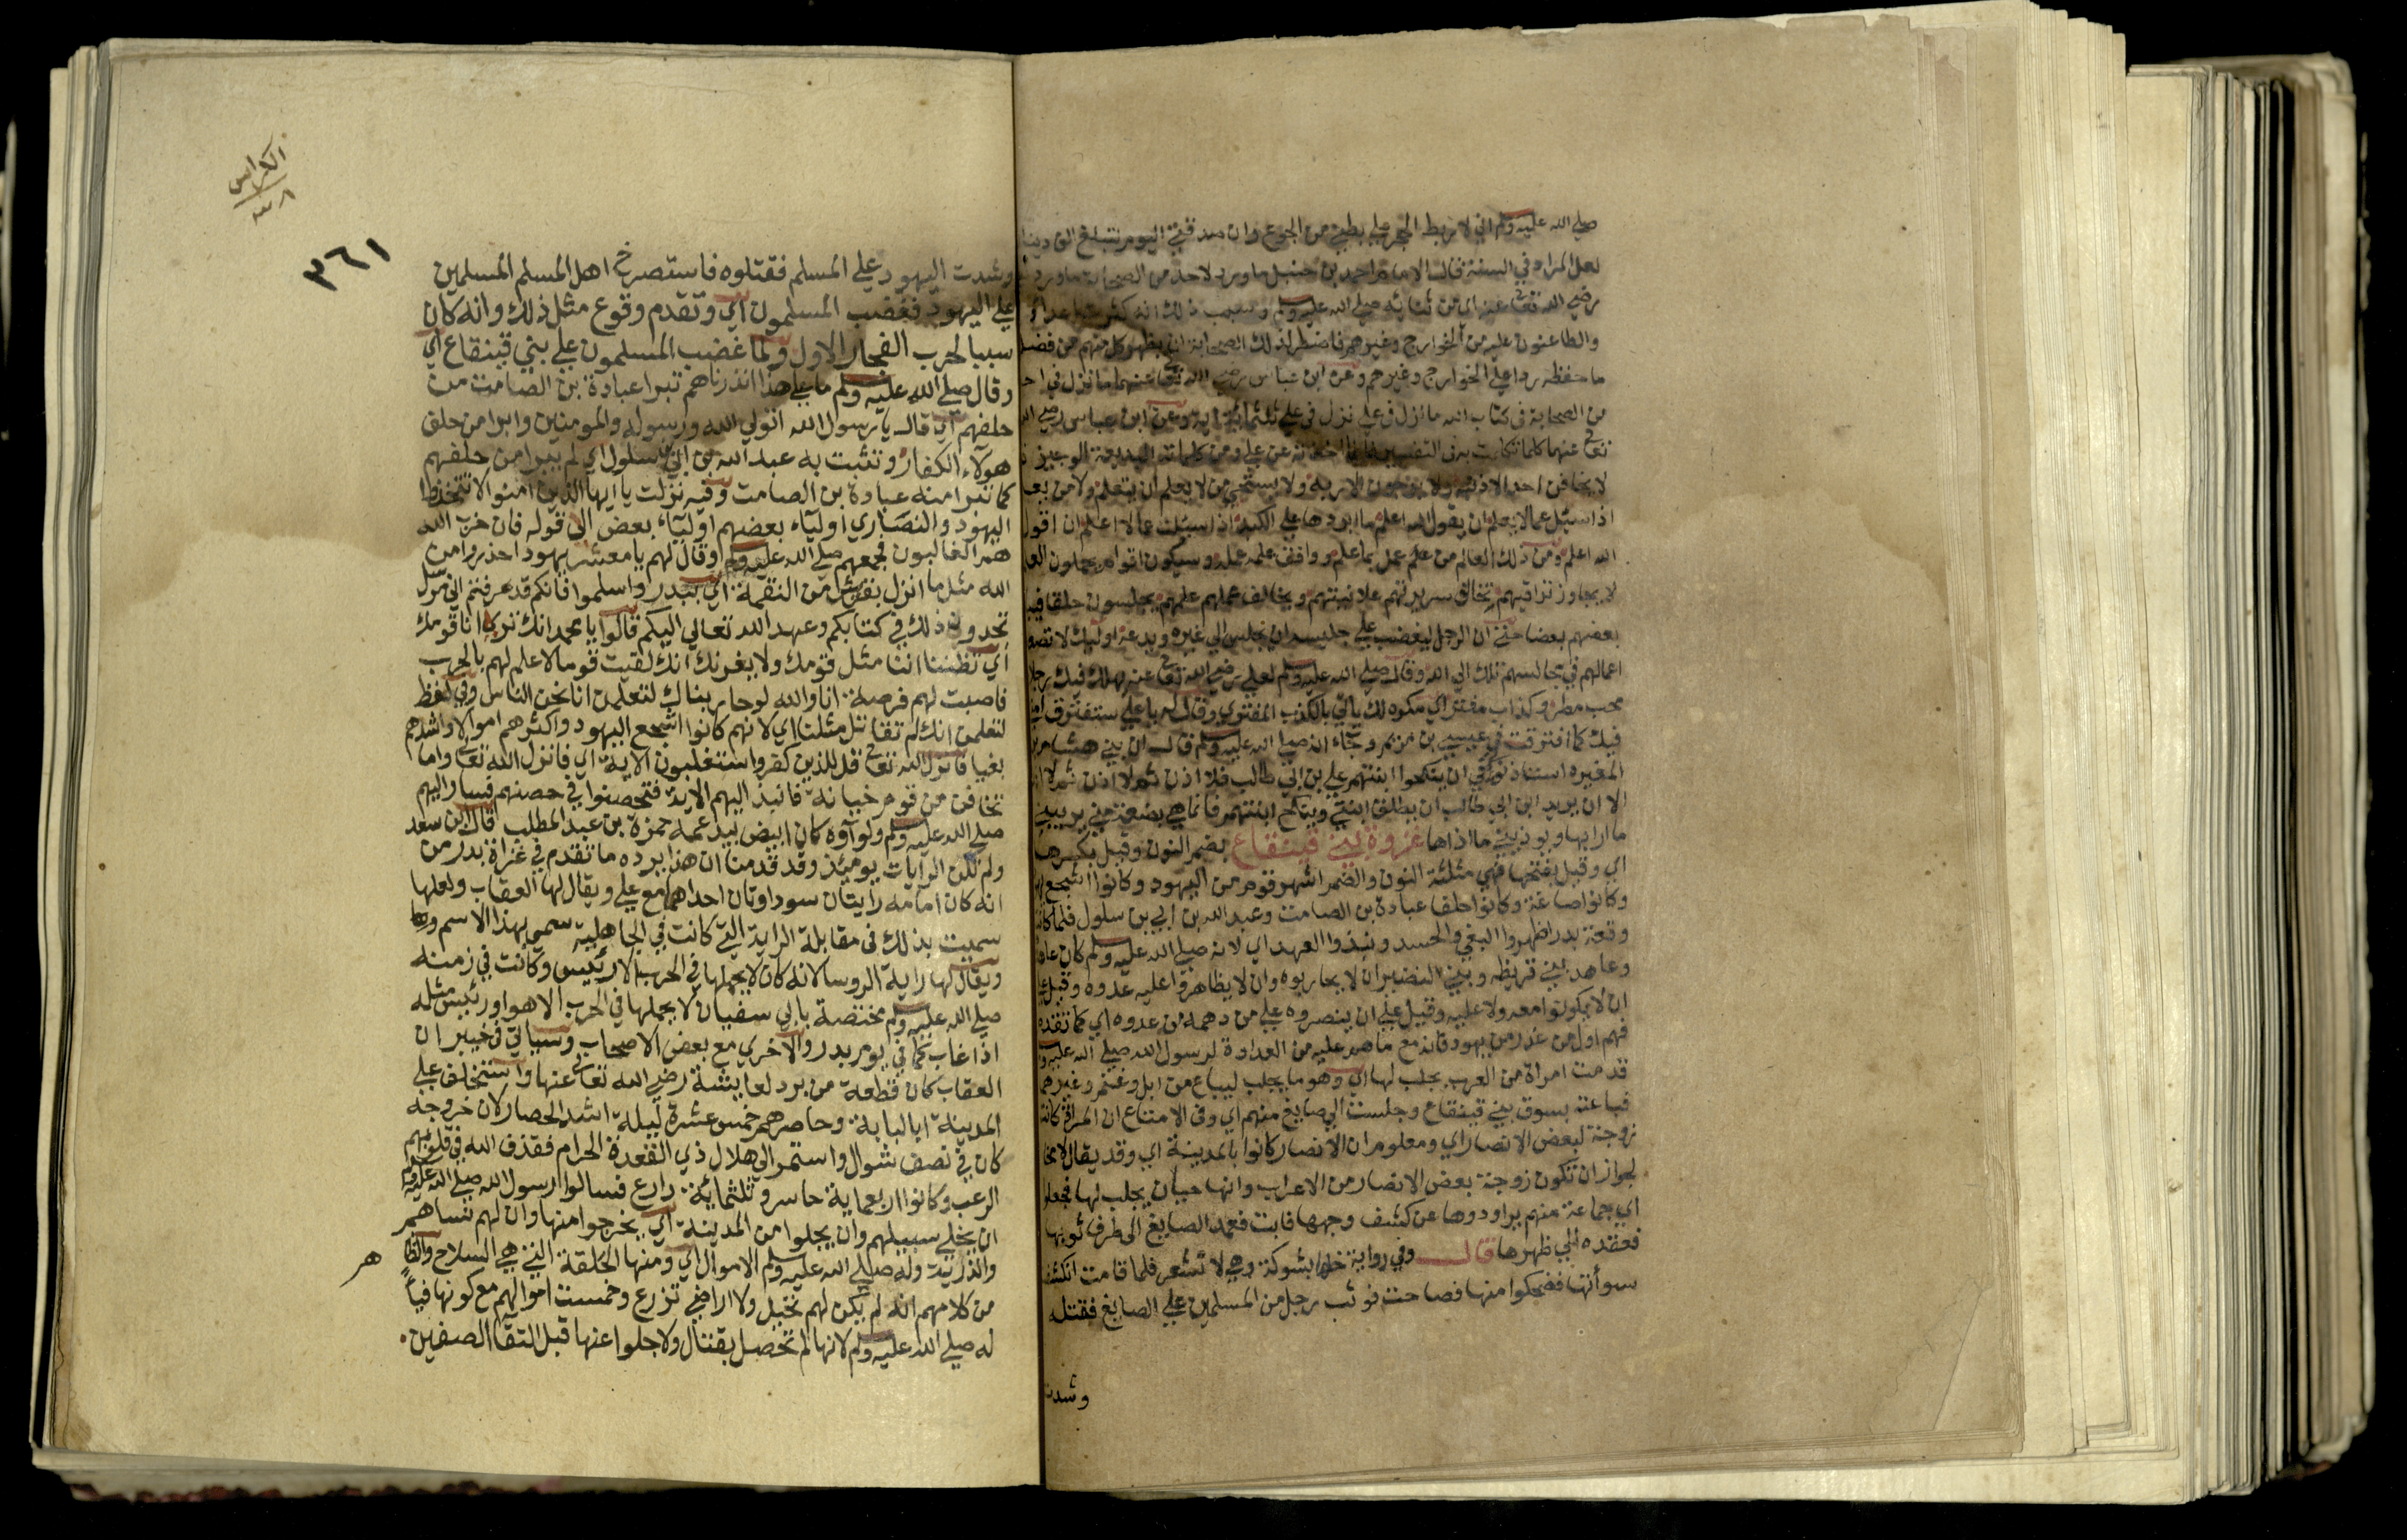 صلي الله عليه وسلم اني لاربط الحجر علي بطني من الجوع وان صدقتي اليوم لتبلغ
لعل المراد في السنة قال الامام احمد بن حنبل ما ورد لاحد من الصحابة ما ورد
رضي الله تعا عنه اي من ثنائه صلي الله عليه وسلم وسبب ذلك انه كثرت اعداؤه
والطاعنون عليه من الخوارج وغيرهم فاضطر لذلك الصحابة ان يظهر كل منهم من فضله
ما حفظه ردا علي الخوارج وغيرهم وعن ابن عباس رضي الله تعا عنهما ما نزل في احد
من الصحابة في كتاب الله ما نزل في علي نزل في علي ثلثماية اية وعن ابن عباس رضي الله
تعا عنهما كلما تكلمت به في التفسير فانما اخذته عن علي ومن كلماته البديعة الوجيزة
لا يخافن احد الا ذنبه ولا يرجون الا ربه ولا يستحي من لا يعلم ان يتعلم ولا من يعلم
اذا سئل عما لا يعلم ان يقول الله اعلم ما ابردها علي الكبد اذا سئلت عما لا اعلم ان اقول
الله اعلم ومن ذلك العالم من علم عمل بما علم ووافق علمه عمله وسيكون اقوام يحملون العلم
لا يجاوز تراقيهم تخالف سريرتهم علانيتهم ويخالف عملهم علمهم يجلسون حلقا فيباهي
بعضهم بعضا حتي ان الرجل ليغضب علي جليسه ان يجلس الي غيره ويدعه اوليك لا تصعد
اعمالهم في مجالسهم تلك الي الله وقال صلي الله عليه وسلم لعلي رضي الله تعا عنه يهلك فيك رجلان
محب مطر وكذاب مفتر اي مكره لك ياتي بالكذب المفتري وقال له يا علي ستفترق امتي
فيك كما افترقت في عيسي بن مريم وجاء انه صلي الله عليه وسلم قال ان بني هشام بن
المغيره استاذنوني في ان ينكحوا ابنتهم علي بن ابي طالب فلا اذن ثم لا اذن ثم لا اذن
الا ان يريد ابن ابي طالب ان يطلق ابنتي وينكح ابنتهم فانما هي بضعة مني يريبني
ما ارابها ويوذيني ما اذاها غزوة بني قينقاع بضم النون وقيل بكسرها
اي وقيل بفتحها فهي مثلثة النون والضم اشهر قوم من اليهود وكانوا اشجع
وكانوا صاغة وكانوا حلفا عبادة بن الصامت وعبد الله بن ابي بن سلول فلما كانت
وقعة بدر اظهروا البغي والحسد ونبذوا العهد اي لانه صلي الله عليه وسلم كان عاهدهم
وعاهد بني قريظه وبني النضير ان لا يحاربوه وان لا يظاهروا عليه عدوه وقيل علي
ان لا يكونوا معه ولا عليه وقيل علي ان ينصروه علي من دهمه من عدوه اي كما تقدم
فهم اول من غدر من يهود فانه مع ما هم عليه من العداوة لرسول الله صلي الله عليه وسلم
قدمت امراة من العرب بجلب لها اي وهو ما يجلب ليباع من ابل وغنم وغيرهما
فباعته بسوق بني قينقاع وجلست الي صايغ منهم اي وفي الامتاع ان المراة كانت
زوجة لبعض الانصار اي ومعلوم ان الانصار كانوا بالمدينة اي وقد يقال لا مخالفة
لجواز ان تكون زوجة بعض الانصار من الاعراب وانها جات بجلب لها فجعلوا
اي جماعة منهم يراودوها عن كشف وجهها فابت فعمد الصايغ الي طرف ثوبها
فعقده الي ظهرها قال وفي رواية خله بشوكة وهي لا تشعر فلما قامت انكشفت
سوأتها فضحكوا منها فصاحت فوثب رجل من المسلمين علي الصايغ فقتله
وشدت
الكراس
٣٨
٣٦١
وشدت اليهود علي المسلم فقتلوه فاستصرخ اهل المسلم المسلمين
علي اليهود فغضب المسلمون اي وتقدم وقوع مثل ذلك وانه كان
سببا لحرب الفجار الاول ولما غضب المسلمون علي بني قينقاع اي
وقال صلي الله عليه وسلم ما علي هذا اقررناهم تبرا عبادة بن الصامت من
حلفهم اي قال يا رسول الله اتولي الله ورسوله والمومنين وابرا من حلف
هولاء الكفار وتشبث به عبد الله بن ابي بن سلول اي لم يبرا من حلفهم
كما تبرا منه عبادة بن الصامت وفيه نزلت يا ايها الذين امنوا لا تتخذوا
اليهود والنصاري اولياء بعضهم اولياء بعض الي قوله فان حزب الله
هم الغالبون فجمعهم صلي الله عليه وسلم وقال لهم يا معشر يهود احذروا من
الله مثل ما انزل بقريش من النقمة اي ببدر واسلموا فانكم قد عرفتم اني مرسل
تجدون ذلك في كتابكم وعهد الله تعالي اليكم قالوا يا محمد انك تري انا قومك
اي تظننا اننا مثل قومك ولا يغرنك انك لقيت قوما لا علم لهم بالحرب
فاصبت لهم فرصة انا والله لو حاربناك لتعلمن انا نحن الناس وفي لفظ
لتعلمن انك لم تقاتل مثلنا اي لانهم كانوا اشجع اليهود واكثرهم اموالا واشدهم
بغيا فانزل الله تعا قل للذين كفروا ستغلبون الاية اي فانزل الله تعا واما
تخافن من قوم خيانة فانبذ اليهم الاية فتحصنوا في حصنهم فسار اليهم
صلي الله عليه وسلم ولواوه كان ابيض بيد عمه حمزة بن عبد المطلب قال ابن سعد
ولم تكن الرايات يوميذ وقد قدمنا ان هذا يرده ما تقدم في غزاة بدر من
انه كان امامه رايتان سوداوتان احداهما مع علي ويقال لها العقاب ولعلها
سميت بذلك في مقابلة الراية التي كانت في الجاهلية تسمي بهذا الاسم
ويقال لها راية الروسا لانه كان لا يحملها في الحرب الا رئيس وكانت في زمنه
صلي الله عليه وسلم مختصة بابي سفيان لا يحملها في الحرب الا هو او رئيس مثله
اذا غاب كما في يوم بدر والاخري مع بعض الاصحاب وسياتي في خيبر ان
العقاب كان قطعة من برد لعايشة رضي الله تعا عنها واستخلف علي
المدينة ابا لبابة وحاصرهم خمس عشرة ليلة اشد الحصار لان خروجه
كان في نصف شوال واستمر الي هلال ذي القعدة الحرام فقذف الله في قلوبهم
الرعب وكانوا اربعماية حاسر وثلثمائة دارع فسالوا رسول الله صلي الله عليه وسلم
ان يخلي سبيلهم وان يجلوا من المدينة اي يخرجوا منها وان لهم نساهم
والذرية وله صلي الله عليه وسلم الاموال اي ومنها الحلقة التي هي السلاح والظاهر
من كلامهم انه لم يكن لهم نخيل ولا اراضي تزرع وخمست اموالهم مع كونها فيأ
له صلي الله عليه وسلم لانها لم تحصل بقتال ولا جلوا عنها قبل التقا الصفين